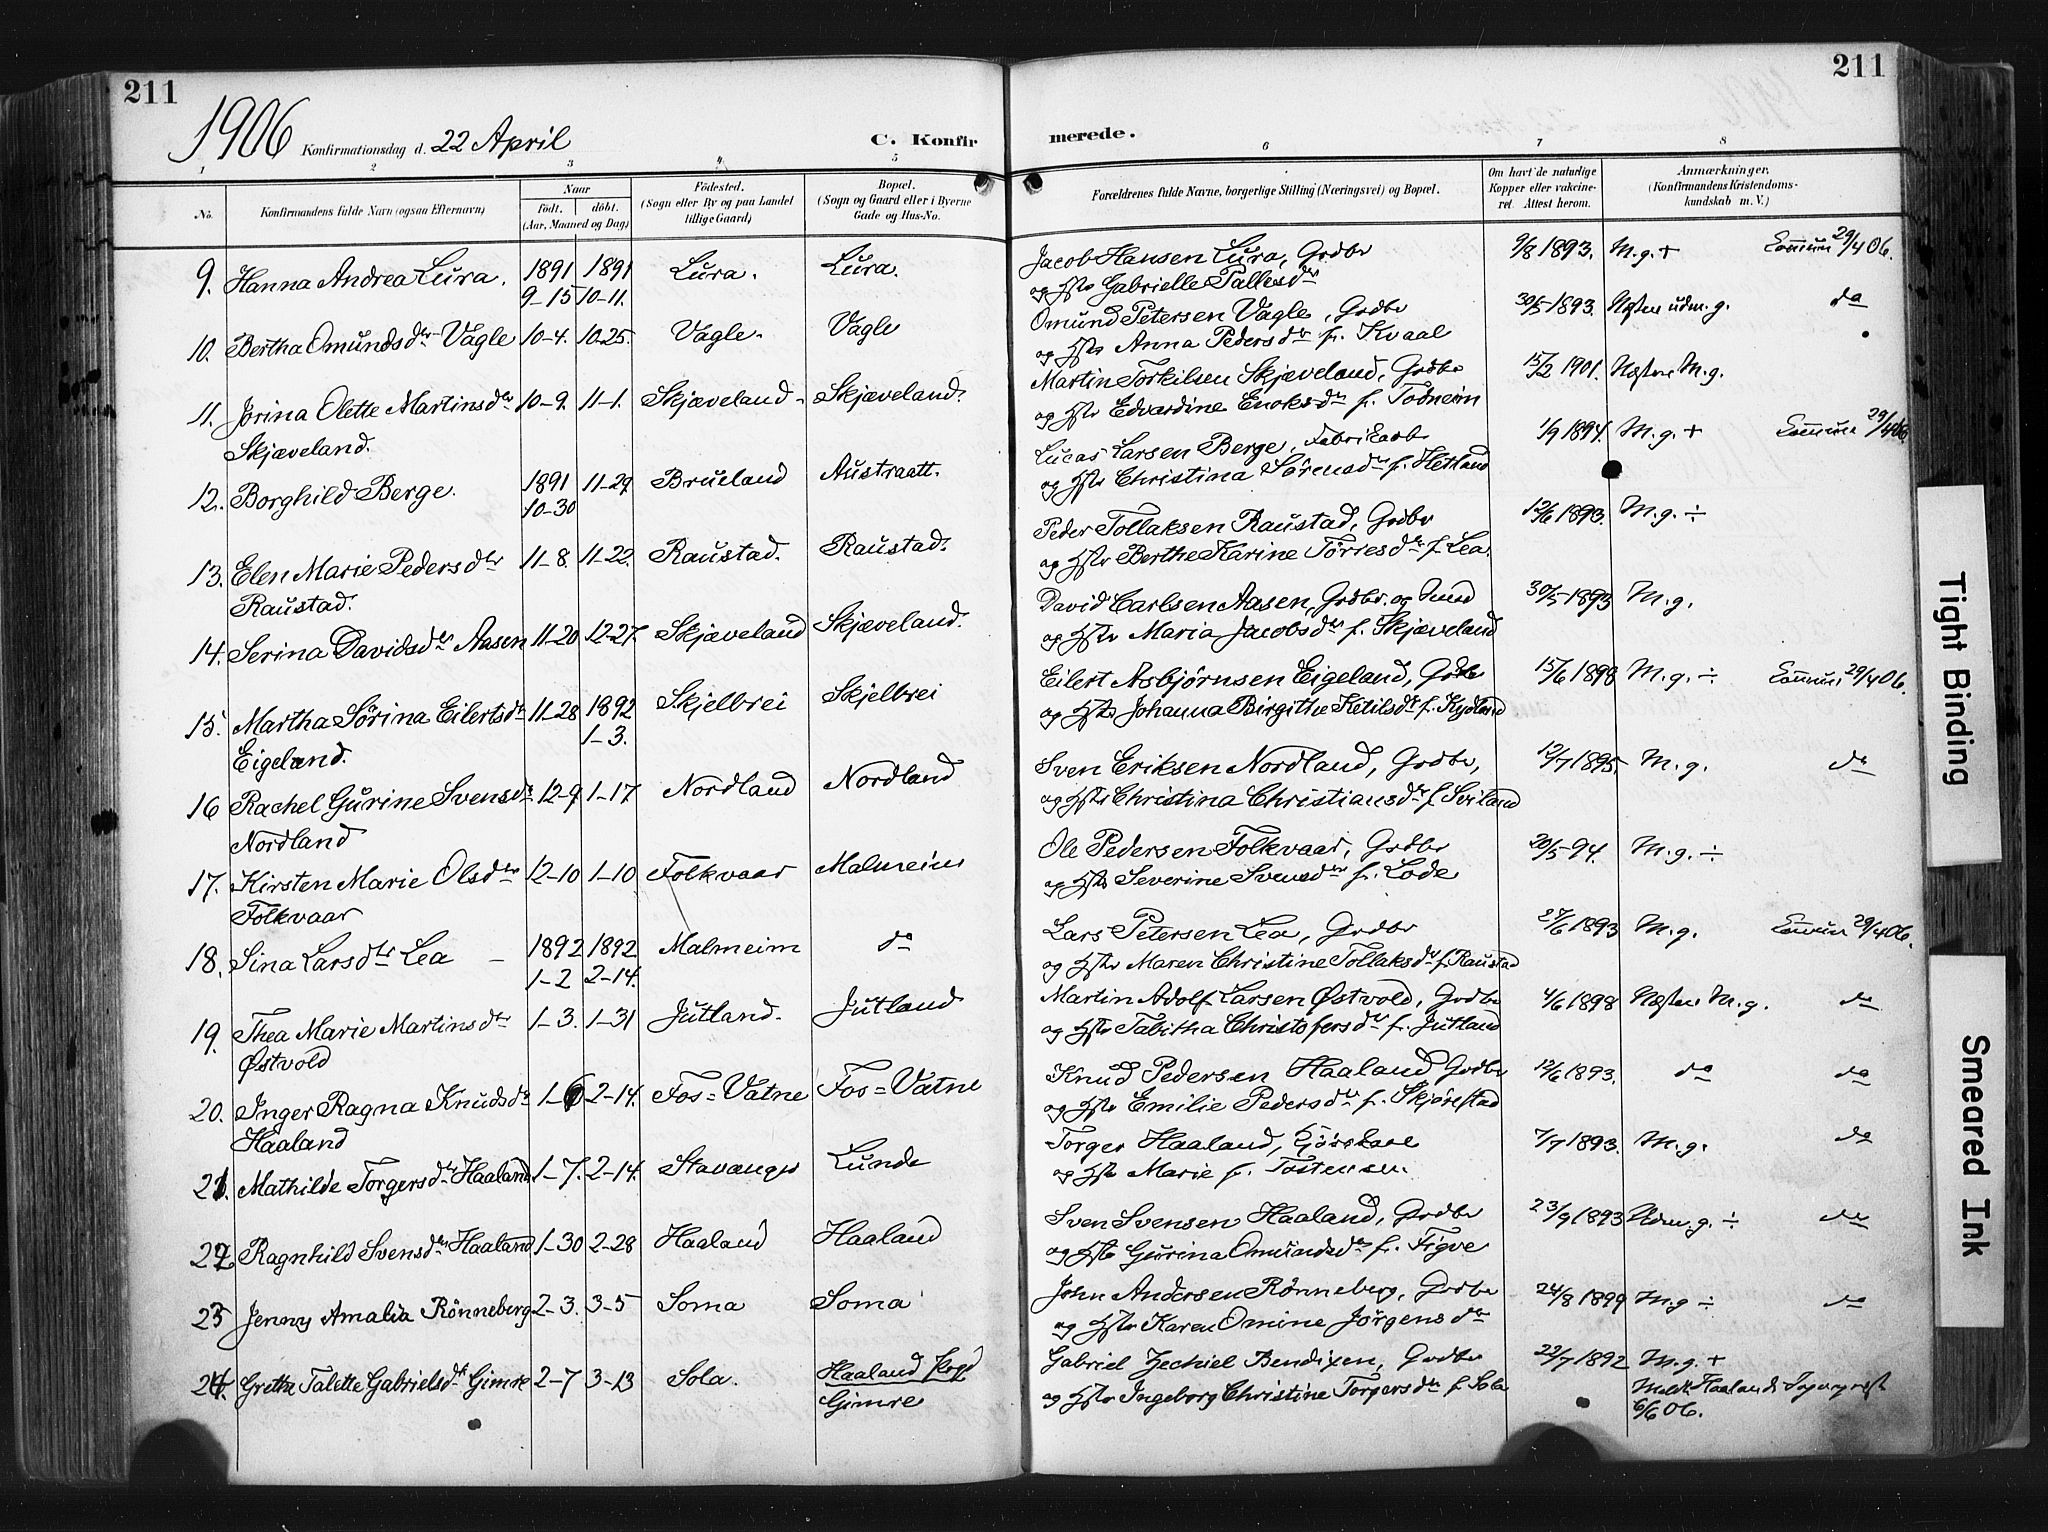 211
211
1906
Konfirmationsdag d. 22 April
C. Konfir
merede.
1
2
3
4
5
6
7
8
No.
Konfirmandens fulde Navn (ogsaa Efternavn)
Naar
født.
døbt.
(Aar, Maaned og Dag)
Fødested.
(Sogn eller By og paa Landet
tillige Gaard)
Bopæl.
(Sogn og Gaard eller i Byerne
Gade og Hus-No.
Forældrenes fulde Navne, borgerlige Stilling (Næringsvei) og Bopæl.
Om havt de naturlige
Kopper eller vakcine-
ret. Attest herom.
Anmærkninger.
(Konfirmandens Kristendoms-
kundskab m.V.)
9. Hanna Andrea Lura. 1891 1891 Lura. Lura. Jacob Hansen Lura, Grdbr 9/8 1893. M.g.+ 29/4 06.
9-15 10-11. og Hstr Gabrielle Tallesdtr
10. Bertha Omundsdtr Vagle 10-4. 10-25. Vagle. Vagle Omund Petersen Vagle, Grdbr 30/5-1893. Næsten udm.g. do
og Hstr Anna Pedersdtr f. Kvaal
11. Jorina Olette Martinsdtr 10-9. 11-1. Skjæveland. Skjæveland. Martin Torkilsen Skjæveland, Grdbr 15/2 1901. Næsten M.g.
Skjæveland. og Hstr Edvardine Enoksdtr f. Todneim
12. Borghild Berge. 1891 11-29 Brueland Austraatt. Lucas Larsen Berge, Fabrikarb 1/9 1894. M.g.+ 29/4 06
10-30 og Hstr Christina Sørensdtr f. Hetland
13. Elen Marie Pedersdtr 11-8. 11-22. Raustad. Raustad. Peder Tollaksen Raustad, Grdbr 12/6 1893. M.g.÷
Raustad. og Hstr Berthe Karine Torriesdtr f. Lea.
14. Serina Davidsdtr Aasen 11-20 12-27. Skjæveland Skjæveland. David Carlsen Aasen, Grdbr. og Smed 30/5-1893 M.g.
og Hstr Maria Jacobsdtr f. Skjæveland
15. Martha Sørina Eilertsdtr 11-28 1892 Skjelbrei Skjelbrei Eilert Asbjørnsen Eigeland, Grdbr 15/6 1898 M.g.÷ 29/4 06.
Eigeland. 1-3. og Hstr Johanna Birgithe Ketilsdtr f. Kydland
16 Rachel Gurine Svensdtr 12-9 1-17 Nordland Nordland Sven Eriksen Nordland, Grdbr, 12/7 1895. M.g. do
Nordland og Hstr Christina Christiansdtr f. Sviland
17. Kirsten Marie Olsdtr 12-10 1-10 Folkvaar Malmeim Ole Pedersen Folkvaar, Grdbr 20/5-94. M.g.÷
Folkvaar og Hstr Severine Svensdtr f. Lode
18. Sina Larsdtr Lea 1892 1892 Malmeim do Lars Petersen Lea, Grdbr 27/6 1893 M.g. 29/4 06.
1-2 2-14. og Hstr Maren Christine Tollaksdtr f. Raustad
19. Thea Marie Martinsdtr 1-3. 1-31 Jutland. Jutland Martin Adolf Larsen Østvold, Grdbr 4/6 1898 Næsten M.g. do
Østvold og Hstr Tabitha Christofersdtr f. Jutland
20. Inger Ragna Knudsdtr 1-6 2-14. Fos=Vatne Fos=Vatne Knud Pedersen Haaland Grdbr 12/6 1893. do do
Haaland og Hstr Emilie Pedersdtr f. Skjørestad
21. Mathilde Torgersdtr Haaland 1-7. 2-14. Stavanger Lunde Torger Haaland, Kjørekarl 7/7 1893. M.g. do
og Hstr Marie f. Tostensen.
22 Ragnhild Svensdtr Haaland 1-30 2-28 Haaland Haaland Sven Svensen Haaland, Grdbr 23/9 1893 Udm.g.÷ do
og Hstr Gurina Omundsdtr f. Figve
23 Jenny Amalia Rønneberg 2-3. 3-5 Soma Soma John Andersen Rønneberg, Grdbr 24/8 1899 M.g÷ do
og Hstr Karen Omine Jørgensdtr
24. Grethe Talette Gabrielsdtr Gimre 2-7 3-13 Sola. Haaland Pgd Gabriel Zechiel Bendixen, Grdbr 22/7 1892 M.g.+
Gimre og Hstr Ingeborg Christine Torgersdtr f. Sola Meldt Haalands Sogneprest
6/6 06.
Tight Binding
Smeared Ink